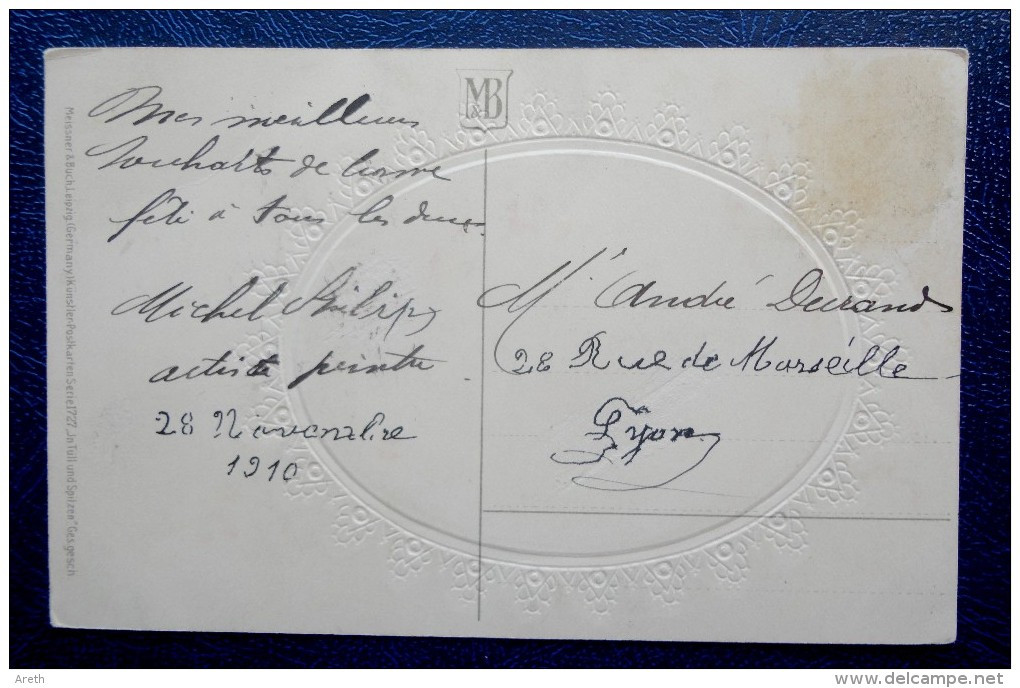 M&B
Mes meilleurs
Souhaits de bonne
fête à tous les deux
Michel Philipp
artiste peintre
28 Novembre
1910
Mr André Durand
28 Rue de Marseille
Lyon
Meissner & Buch, Leipzig (Germany) Künstler-Postkarten Serie 1727 „In Tüll und Spitzen" Ges. gesch
Areth
www.delcampe.net